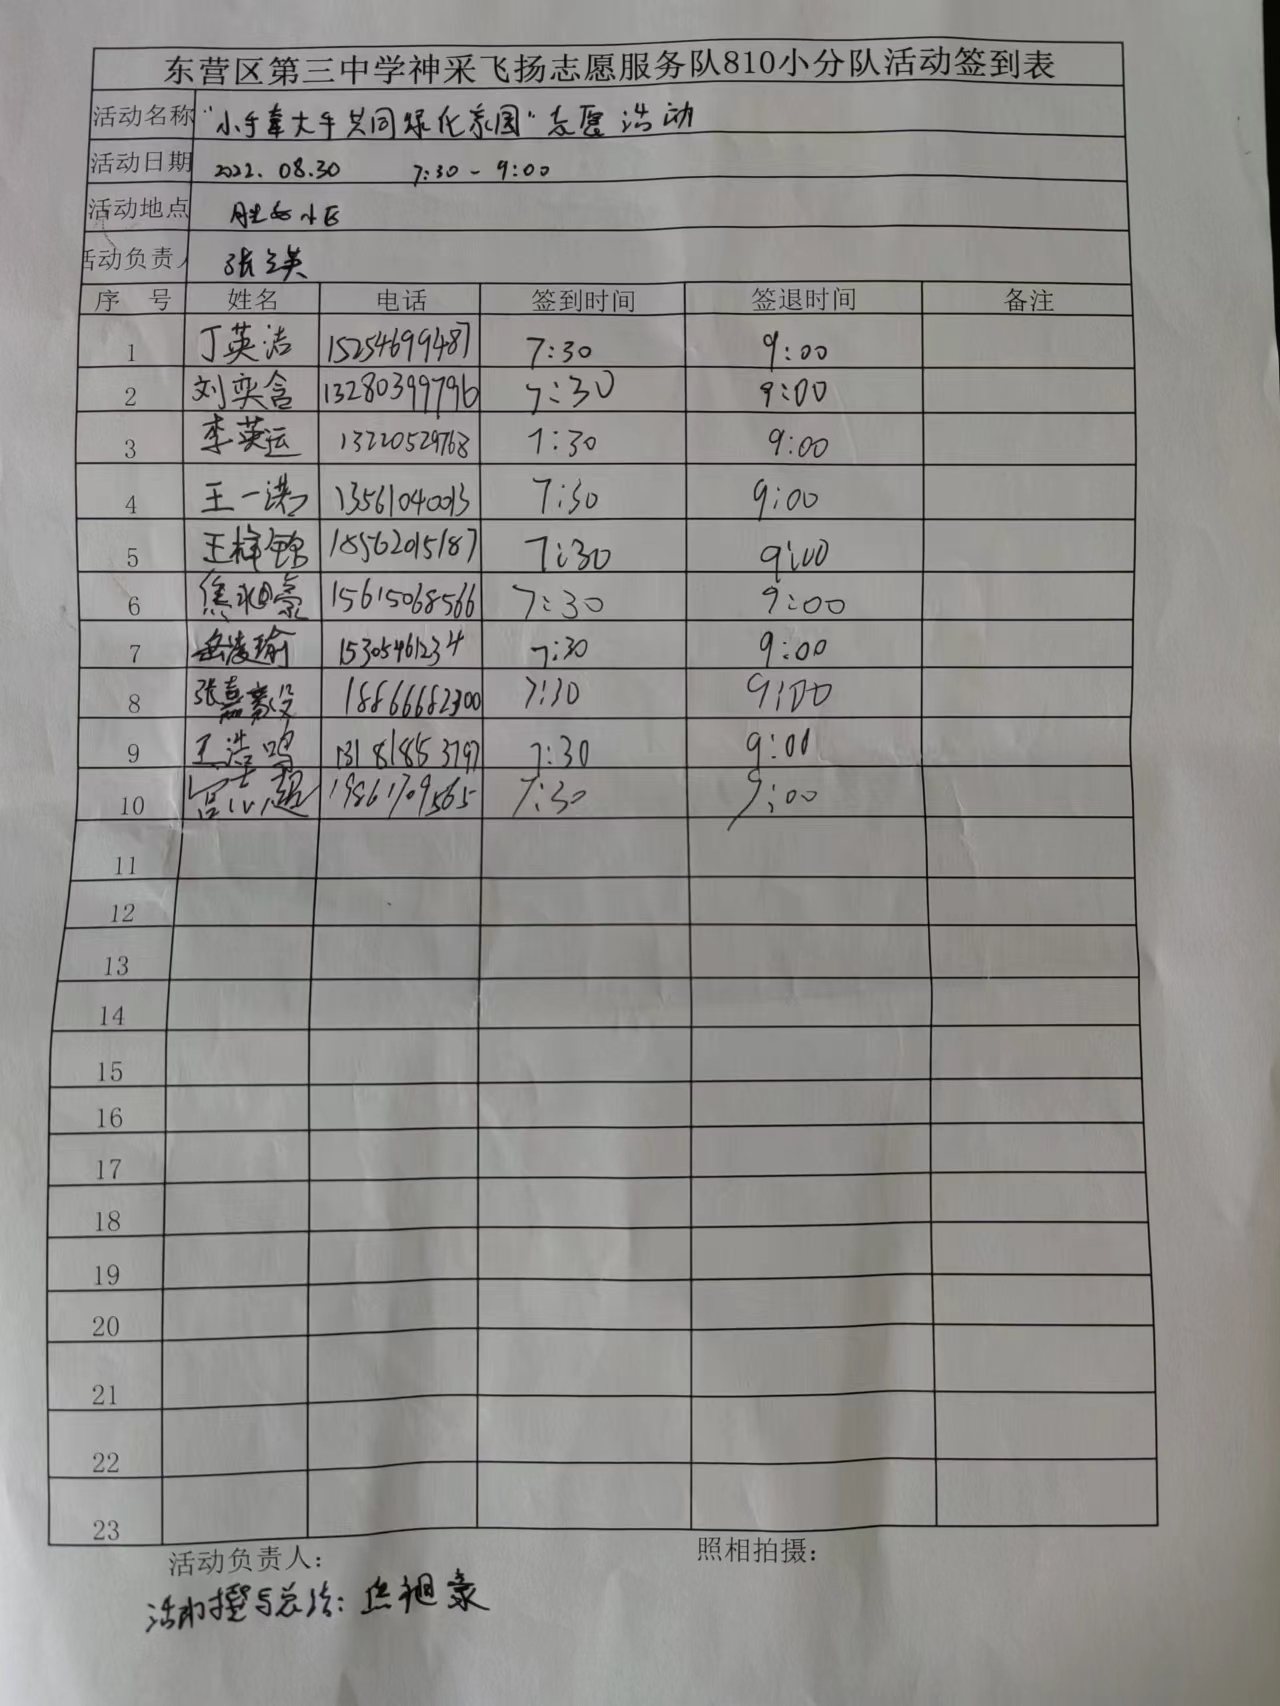 东营区第三中学神采飞扬志愿服务队810小分队活动签到表
活动名称 "小手牵大手共同绿化家园"志愿活动
活动日期 2022.08.30 7:30-9:00
活动地点 胜安小区
活动负责人 张立英
序号 姓名 电话 签到时间 签退时间 备注
1 丁英洁 15254699487 7:30 9:00
2 刘奕含 13280399796 7:30 9:00
3 李英运 13220529768 7:30 9:00
4 王一诺 13561040013 7:30 9:00
5 王梓锦 18562015187 7:30 9:00
6 焦豪 15615068566 7:30 9:00
7 岳凌瑜 15305461234 7:30 9:00
8 张嘉毅 18866682300 7:30 9:00
9 王浩鸣 13181853797 7:30 9:00
10 宫志超 19861709565 7:30 9:00
11
12
13
14
15
16
17
18
19
20
21
22
23
活动负责人: 照相拍摄:
活动撰写总结: 焦豪